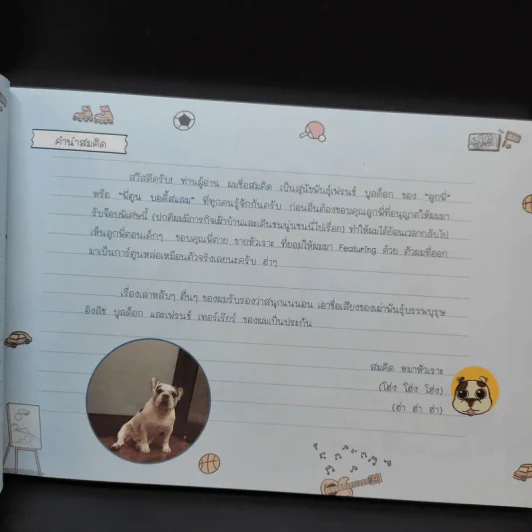 คำนำสมคิด
สวัสดีครับ! ท่านผู้อ่าน ผมชื่อสมคิด เป็นสุนัขพันธุ์เฟรนช์ บูลด็อก ของ "ลูกพี่"
หรือ "พี่ตูน บอดี้สแลม" ที่ทุกคนรู้จักกันครับ ก่อนอื่นต้องขอบคุณลูกพี่ที่อนุญาตให้ผมมา
รับจ๊อบพิเศษนี้ (ปกติผมมีภารกิจเฝ้าบ้านและเดินชนนู่นชนนี่ไปเรื่อย) ทำให้ผมได้ย้อนเวลากลับไป
เห็นลูกพี่ตอนเด็กๆ ขอบคุณพี่ต่าย ขายหัวเราะ ที่ยอมให้ผมมา Featuring ด้วย ตัวผมที่ออก
มาเป็นการ์ตูนหล่อเหมือนตัวจริงเลยนะครับ ฮ่าๆ
เรื่องเล่าหลับๆ ตื่นๆ ของผมรับรองว่าสนุกแน่นอน เอาชื่อเสียงของเผ่าพันธุ์บรรพบุรุษ
อิงลิช บูลด็อก และเฟรนช์ เทอร์เรียร์ ของผมเป็นประกัน
สมคิด หมาหัวเราะ
(โฮ่ง โฮ่ง โฮ่ง)
(ฮ่า ฮ่า ฮ่า)